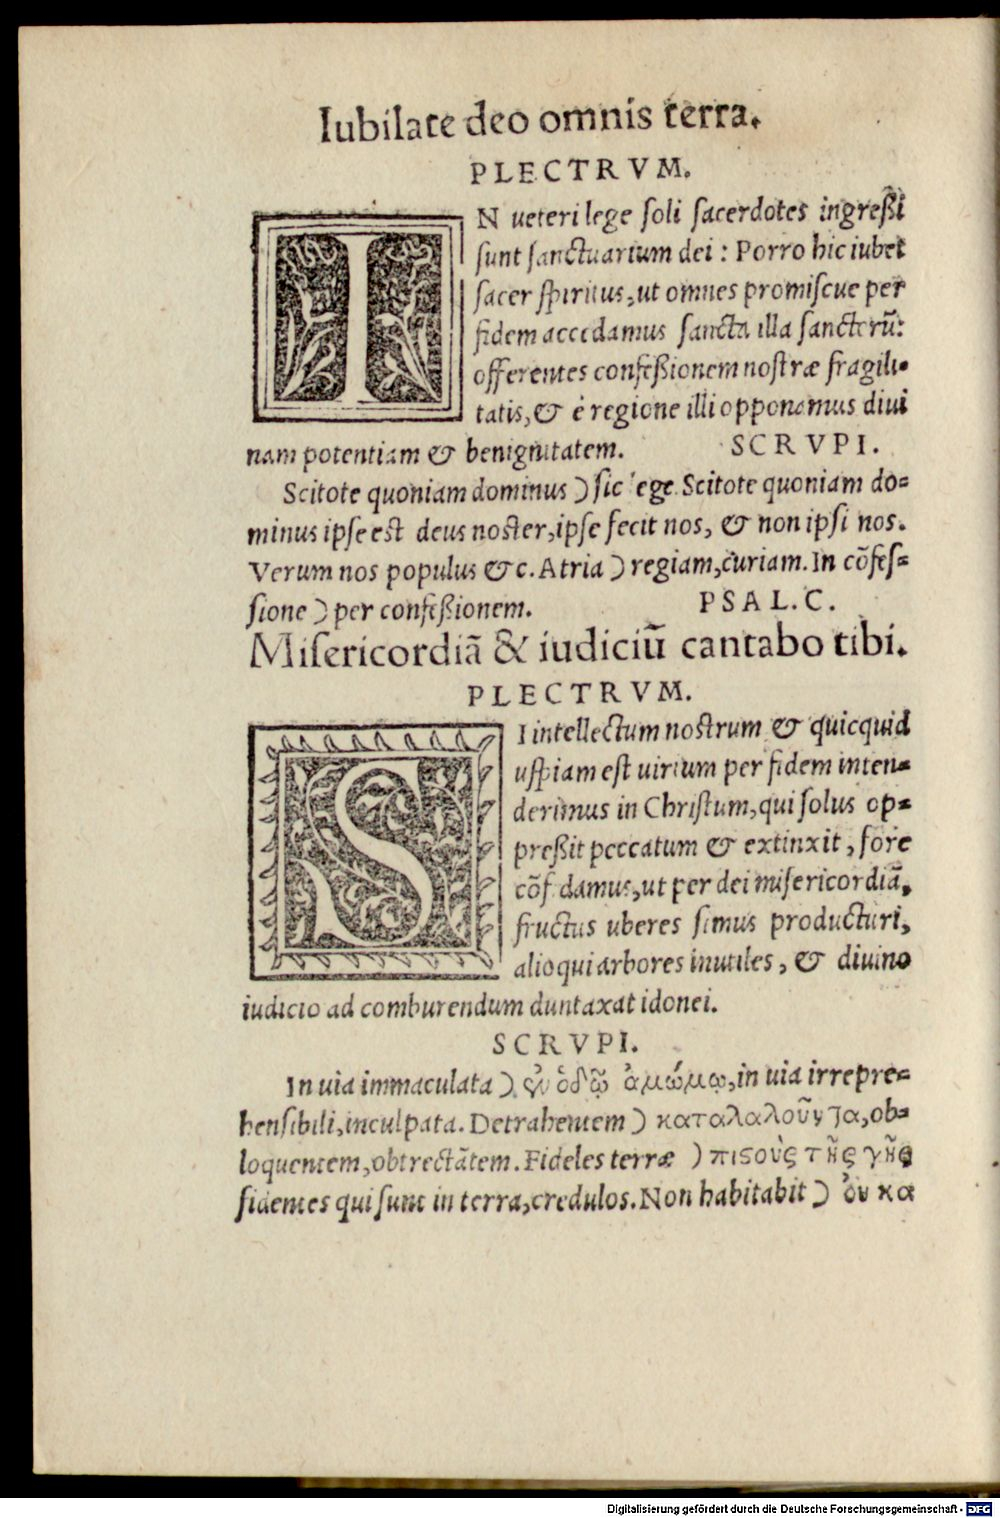 Iubilate deo omnis terra.
PLECTRVM.
IN ueteri lege soli sacerdotes ingreßi
sunt sanctuarium dei : Porro hic iubet
sacer spiritus, ut omnes promiscue per
fidem accedamus sancta illa sanctorũ:
offerentes confeßionem nostræ fragili-
tatis, & è regione illi opponamus diui
nam potentiam & benignitatem. SCRVPI.
Scitote quoniam dominus ) sic lege Scitote quoniam do-
minus ipse est deus noster, ipse fecit nos, & non ipsi nos.
Verum nos populus &c. Atria ) regiam, curiam. In cõfes-
sione ) per confeßionem. PSAL. C.
Misericordiã & iudiciũ cantabo tibi.
PLECTRVM.
SI intellectum nostrum & quicquid
uspiam est uirium per fidem inten-
derimus in Christum, qui solus op-
preßit peccatum & extinxit, fore
cõfidamus, ut per dei misericordiã,
fructus uberes simus producturi,
alioqui arbores inutiles, & diuino
iudicio ad comburendum duntaxat idonei.
SCRVPI.
In uia immaculata ) ἐν ὁδῷ ἀμώμῳ, in uia irrepre-
hensibili, inculpata. Detrahentem ) καταλαλοῦντα, ob-
loquentem, obtrectãtem. Fideles terræ ) πιςοὺς τῆς γῆς
fidentes qui sunt in terra, credulos. Non habitabit ) ὀυ κα
Digitalisierung gefördert durch die Deutsche Forschungsgemeinschaft - DFG